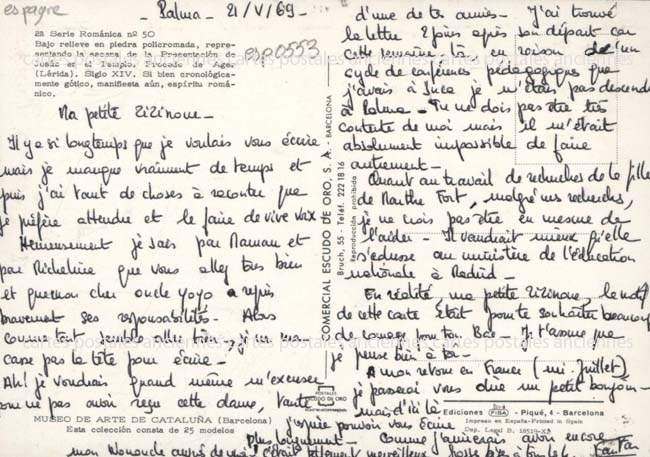 espagne
- Palma - 21/V/69 -
2ª Serie Románica nº 50
Bajo relieve en piedra policromada, repre-
sentando la escena de la Presentación de
Jesús en el Templo. Procede de Ager
(Lérida). Siglo XIV. Si bien cronológica-
mente gótico, manifiesta aún, espíritu romá-
nico.
esp0553
Ma petite Zizinoue -
Il y a si longtemps que je voulais vous écrire
mais je manque vraiment de temps et
puis j'ai tant de choses à raconter que
je préfère attendre et le faire de vive voix
Heureusement je sais par Maman et
par Richelieu que vous allez très bien
et que mon cher oncle yoyo a repris
bravement ses responsabilités - Alors
comme tout semble aller bien, je ne me
casse pas la tête pour écrire -
Ah! je voudrais quand même m'excuser
de ne pas avoir reçu cette dame, tante
MUSEO DE ARTE DE CATALUÑA (Barcelona)
Esta colección consta de 25 modelos
COMERCIAL ESCUDO DE ORO, S. A. - BARCELONA
Bruch, 55 - Teléf. 222 18 16
Reproducción prohibida
POSTALES
ESCUDO DE ORO
d'une de tes amies - J'ai trouvé
la lettre 2 jours après son départ car
cette semaine-là en raison d'un
cycle de conférences pédagogiques que
j'avais à Inca je n'étais pas descendu
à Palma - Tu ne dois pas être très
contente de moi mais il m'était
absolument impossible de faire
autrement -
Quant au travail de recherches de la fille
de Marthe Fort, malgré mes recherches,
je ne crois pas être en mesure de
l'aider - Il vaudrait mieux qu'elle
s'adresse au ministère de l'éducation
nationale à Madrid -
En réalité, ma petite Zizinoue, le motif
de cette carte était pour te souhaiter beaucoup
de courage pour ton Bac - Je t'assure que
je pense bien à toi -
A mon retour en France (mi-Juillet)
je passerai vous dire un petit bonjour -
mais d'ici là
j'espère pouvoir vous écrire
plus longuement - Comme j'aimerais avoir encore
Ediciones FISA - Piqué, 4 - Barcelona
Impreso en España-Printed in Spain
Dep. Legal B. 18519-X
mon Nounouche auprès de moi c'était tellement merveilleux
cartes postales anciennes